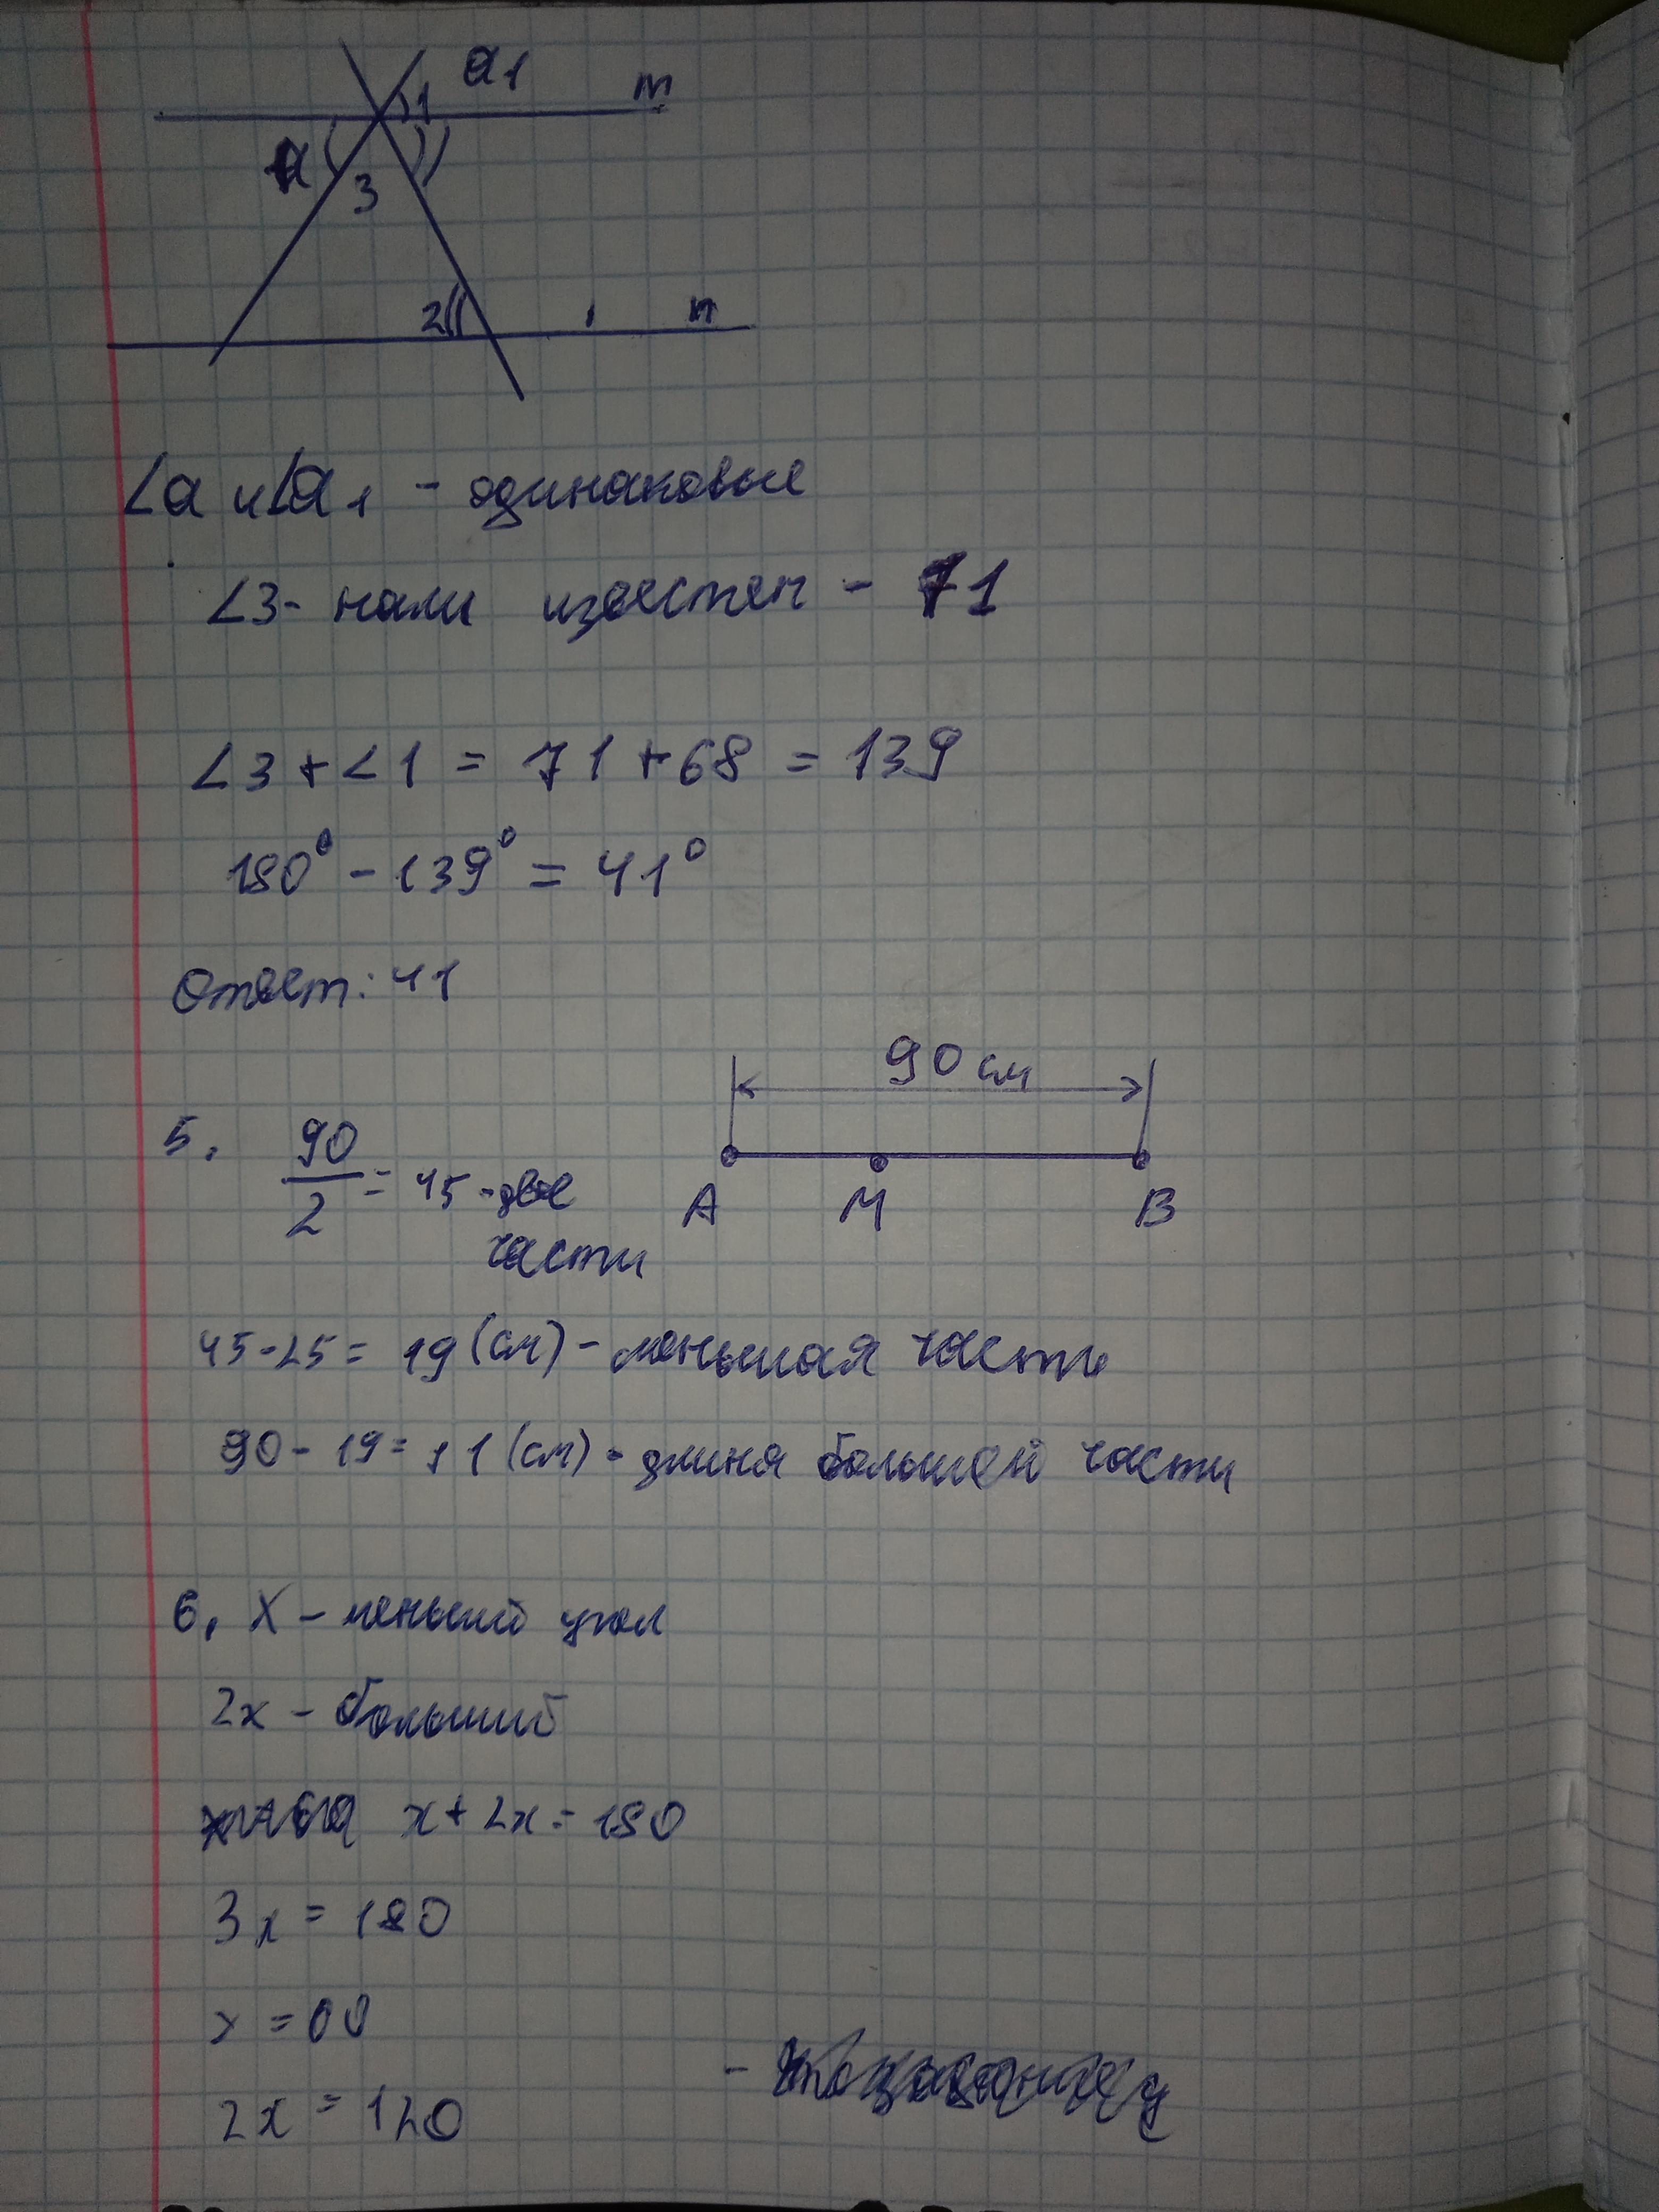 a1
1
m
a
3
2
n
∠a и ∠a1 - одинаковые
∠3 - нами известен - 71
∠3 + ∠1 = 71 + 68 = 139
180° - 139° = 41°
Ответ: 41
90 см
5. 90/2 = 45 - две
части
A M B
45-25 = 19 (см) - меньшая часть
90 - 19 = 11 (см) - длина большей части
6. X - меньший угол
2x - больший
x + 2x = 180
3x = 180
x = 60
2x = 120